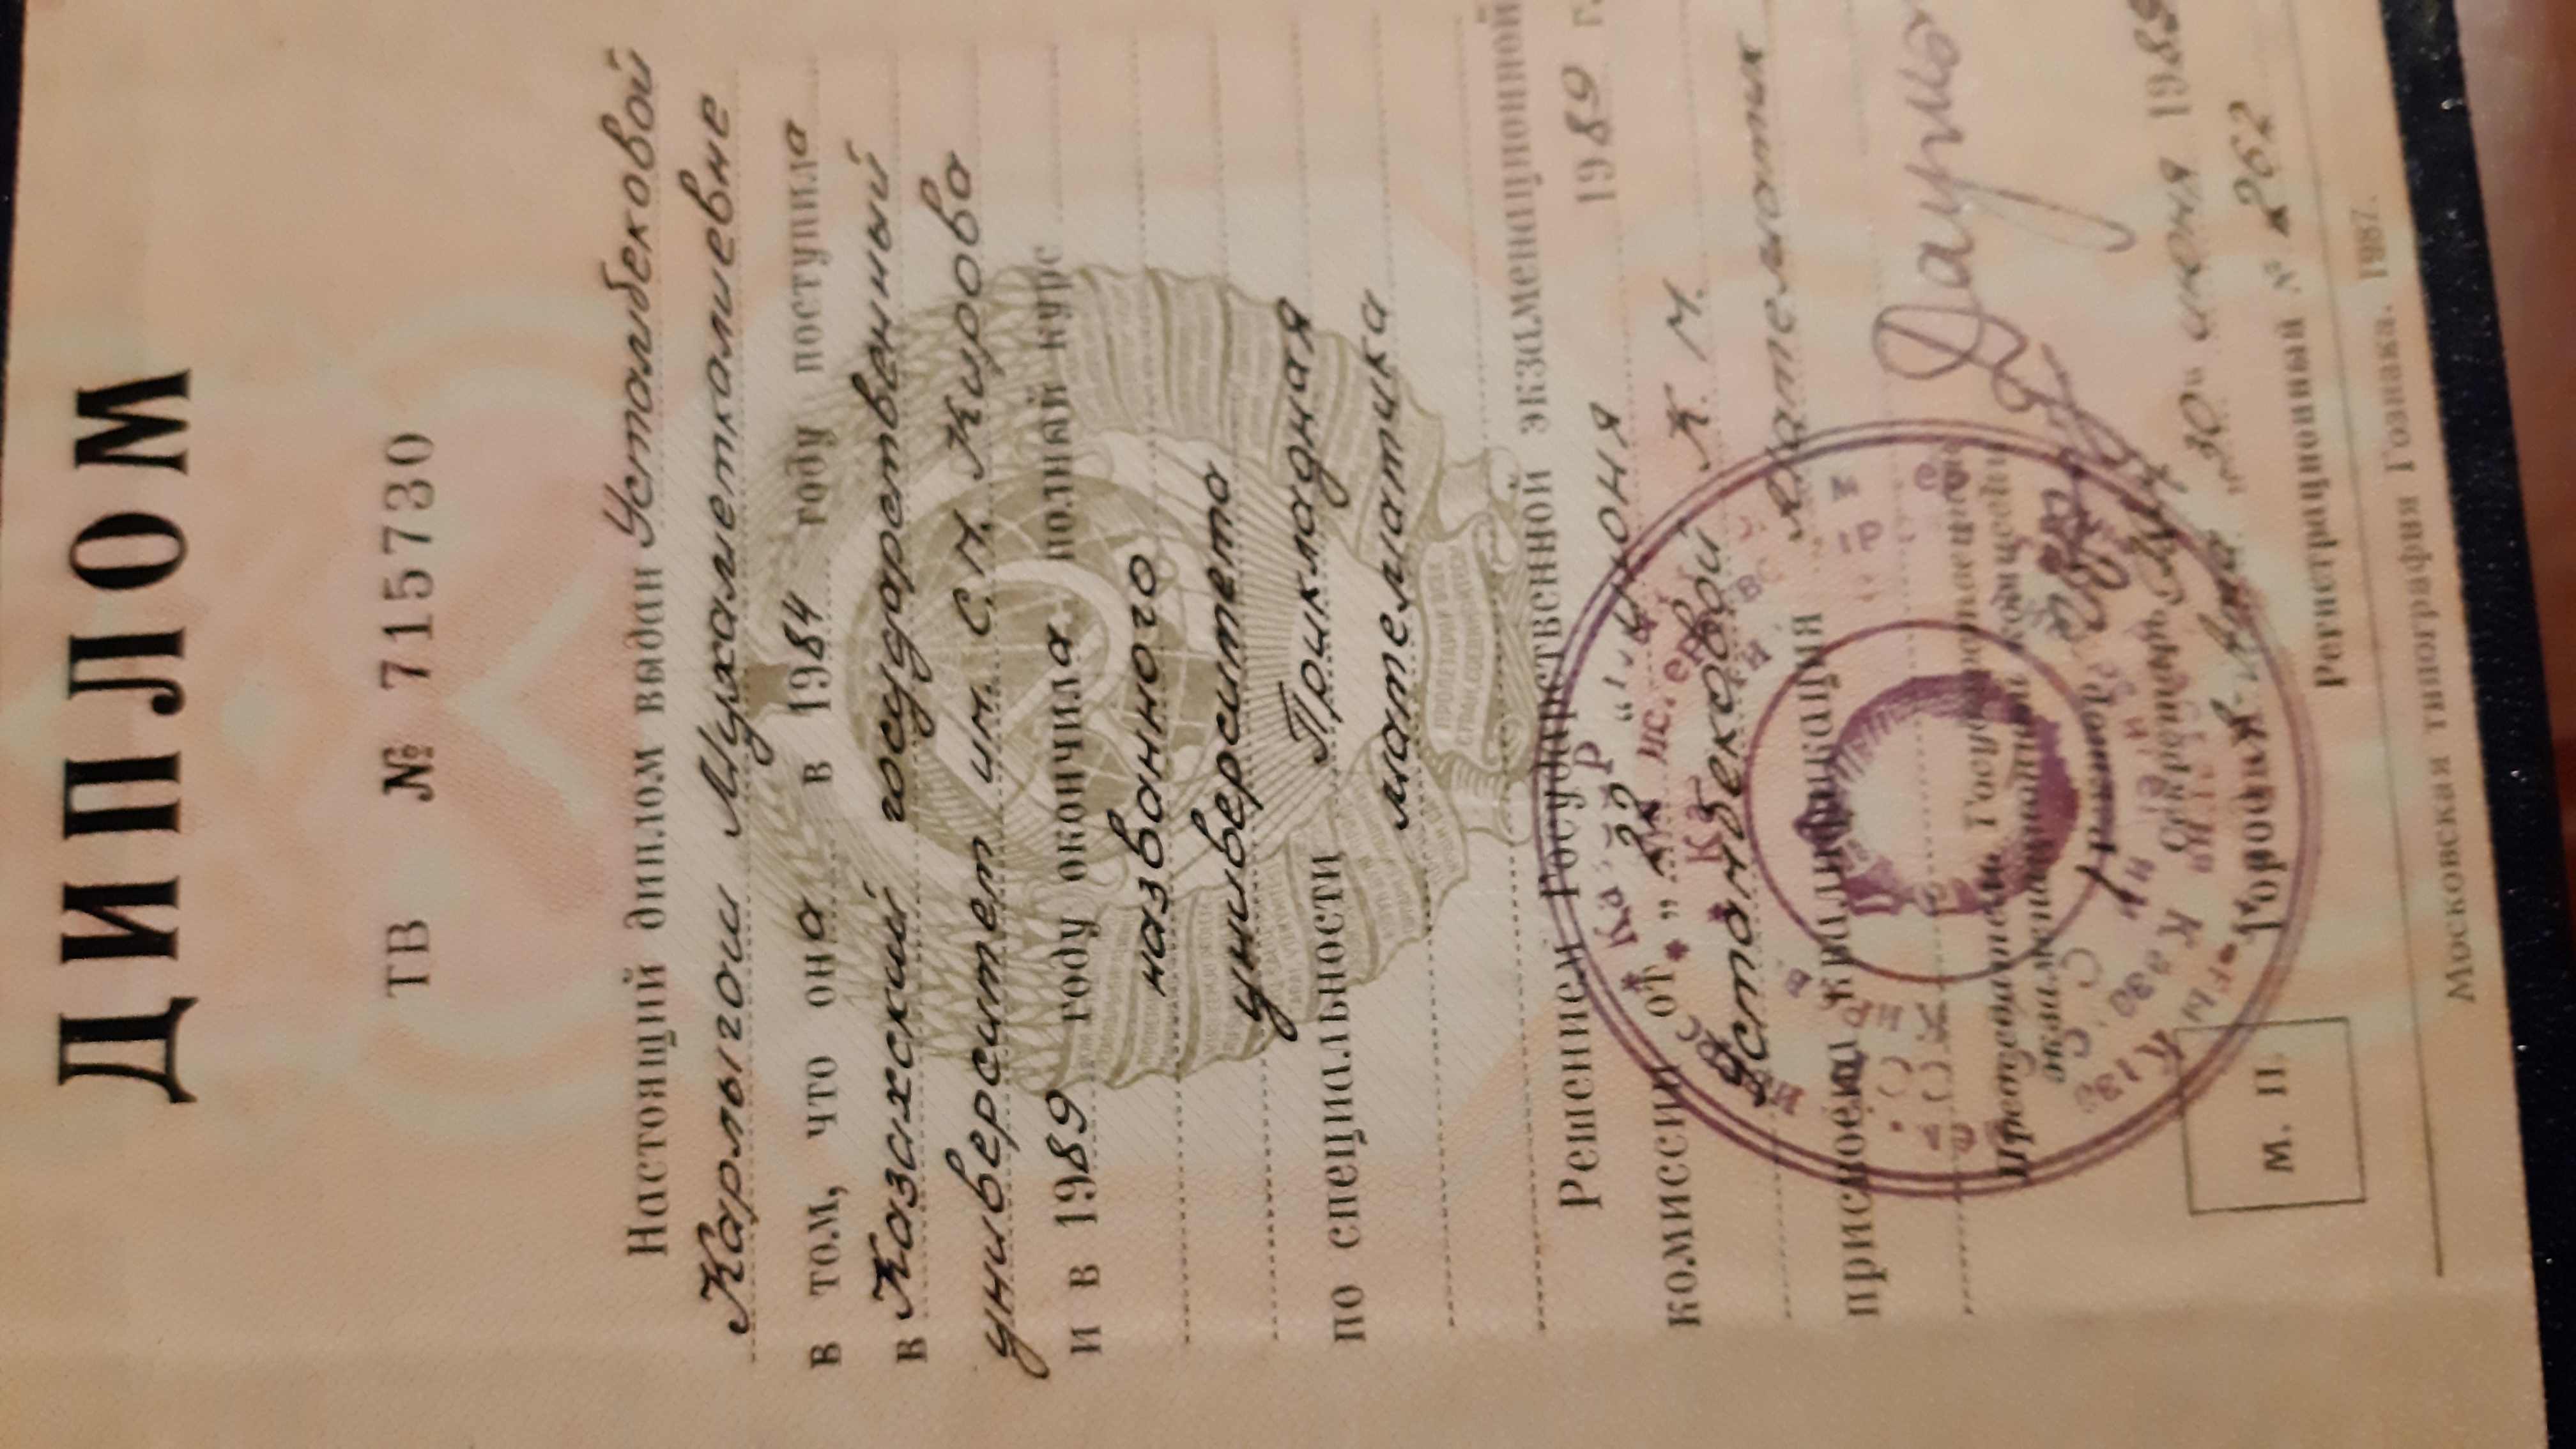 ДИПЛОМ
ТВ № 715730
Настоящий диплом выдан Устамбековой
Карлыгои Мухаметкалиевне
в том, что она в 1984 году поступила
в Казахский государственный
университет им. С.М. Кирова
и в 1989 году окончила полный курс
названного
университета
по специальности Прикладная
математика
Решением Государственной экзаменационной
комиссии от " 22 " июня 1989 г.
Устамбековой К. М.
присвоена квалификация математик
Председатель Государственной
экзаменационной комиссии
Ректор
Секретарь
Город Алма-Ата "30" июня 1989
М. П.
Регистрационный № 262
Московская типография Гознака. 1987.